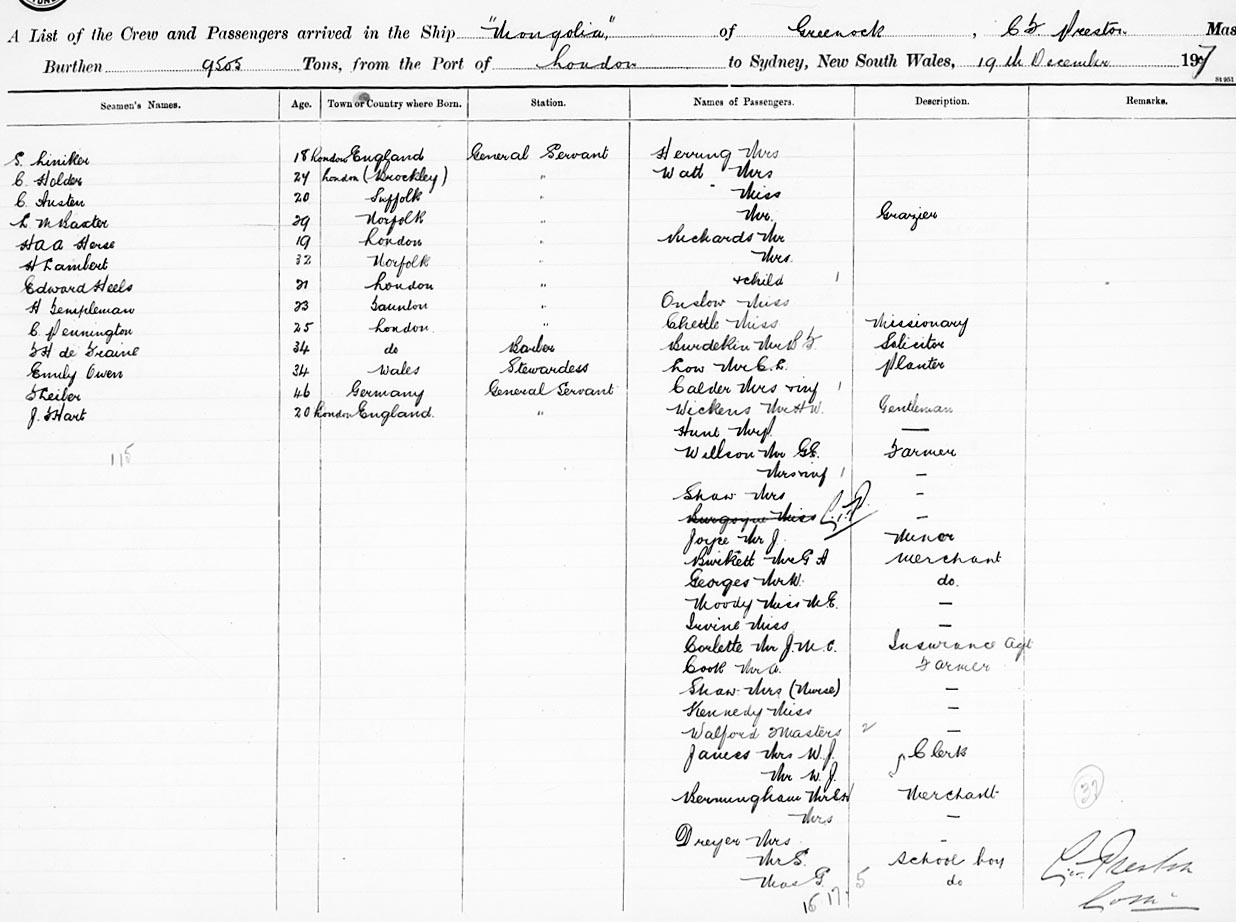 A List of the Crew and Passengers arrived in the Ship "Mongolia," of Greenock, C F Preston Mas
Burthen 9505 Tons, from the Port of London to Sydney, New South Wales, 19th December 1907
St 951
Seamen's Names. Age. Town or Country where Born. Station. Names of Passengers. Description. Remarks.
S. Liniker 18 London England General Servant Herring Mrs
C Holder 24 London (Brockley) " Watt Mrs
C. Austen 20 Suffolk " " Miss
L. M Baxter 29 Norfolk " Mr. Grazier
H A A Herse 19 London " Richards Mr
H Lambert 32 Norfolk " Mrs.
Edward Heels 21 London " + child 1
H Templeman 23 Taunton " Onslow Miss
C. Pennington 25 London " Chettle Miss Missionary
F H de Fraine 34 do Barber Burdekin Mr B F. Solicitor
Emily Owen 34 Wales Stewardess Low Mr C. E. Planter
F Leiber 46 Germany General Servant Calder Mrs & inf 1
J. F Hart 20 London England " Wickens Mr H W. Gentleman
Hunt Mr J. —
115 Willson Mr G E. Farmer
Mrs & inf 1 —
Shaw Mrs -
Burgoyne Miss C.F.P. —
Joyce Mr J. Miner
Birkett Mr G A Merchant
Georges Mr W. do.
Moody Miss M. E. —
Irvine Miss —
Corlette Mr J. M. C. Insurance Agt
Cook Mr A. Farmer
Shaw Mrs (Nurse) —
Kennedy Miss —
Walford 2 Masters 2 —
James Mrs W. J. Clerk
Mr W. J.
Bermingham Mr Merchant 32
Mrs —
Dreyer Mrs -
Mr S. School boy
Mas G. 5 do
16 17 C. F. Preston
Com